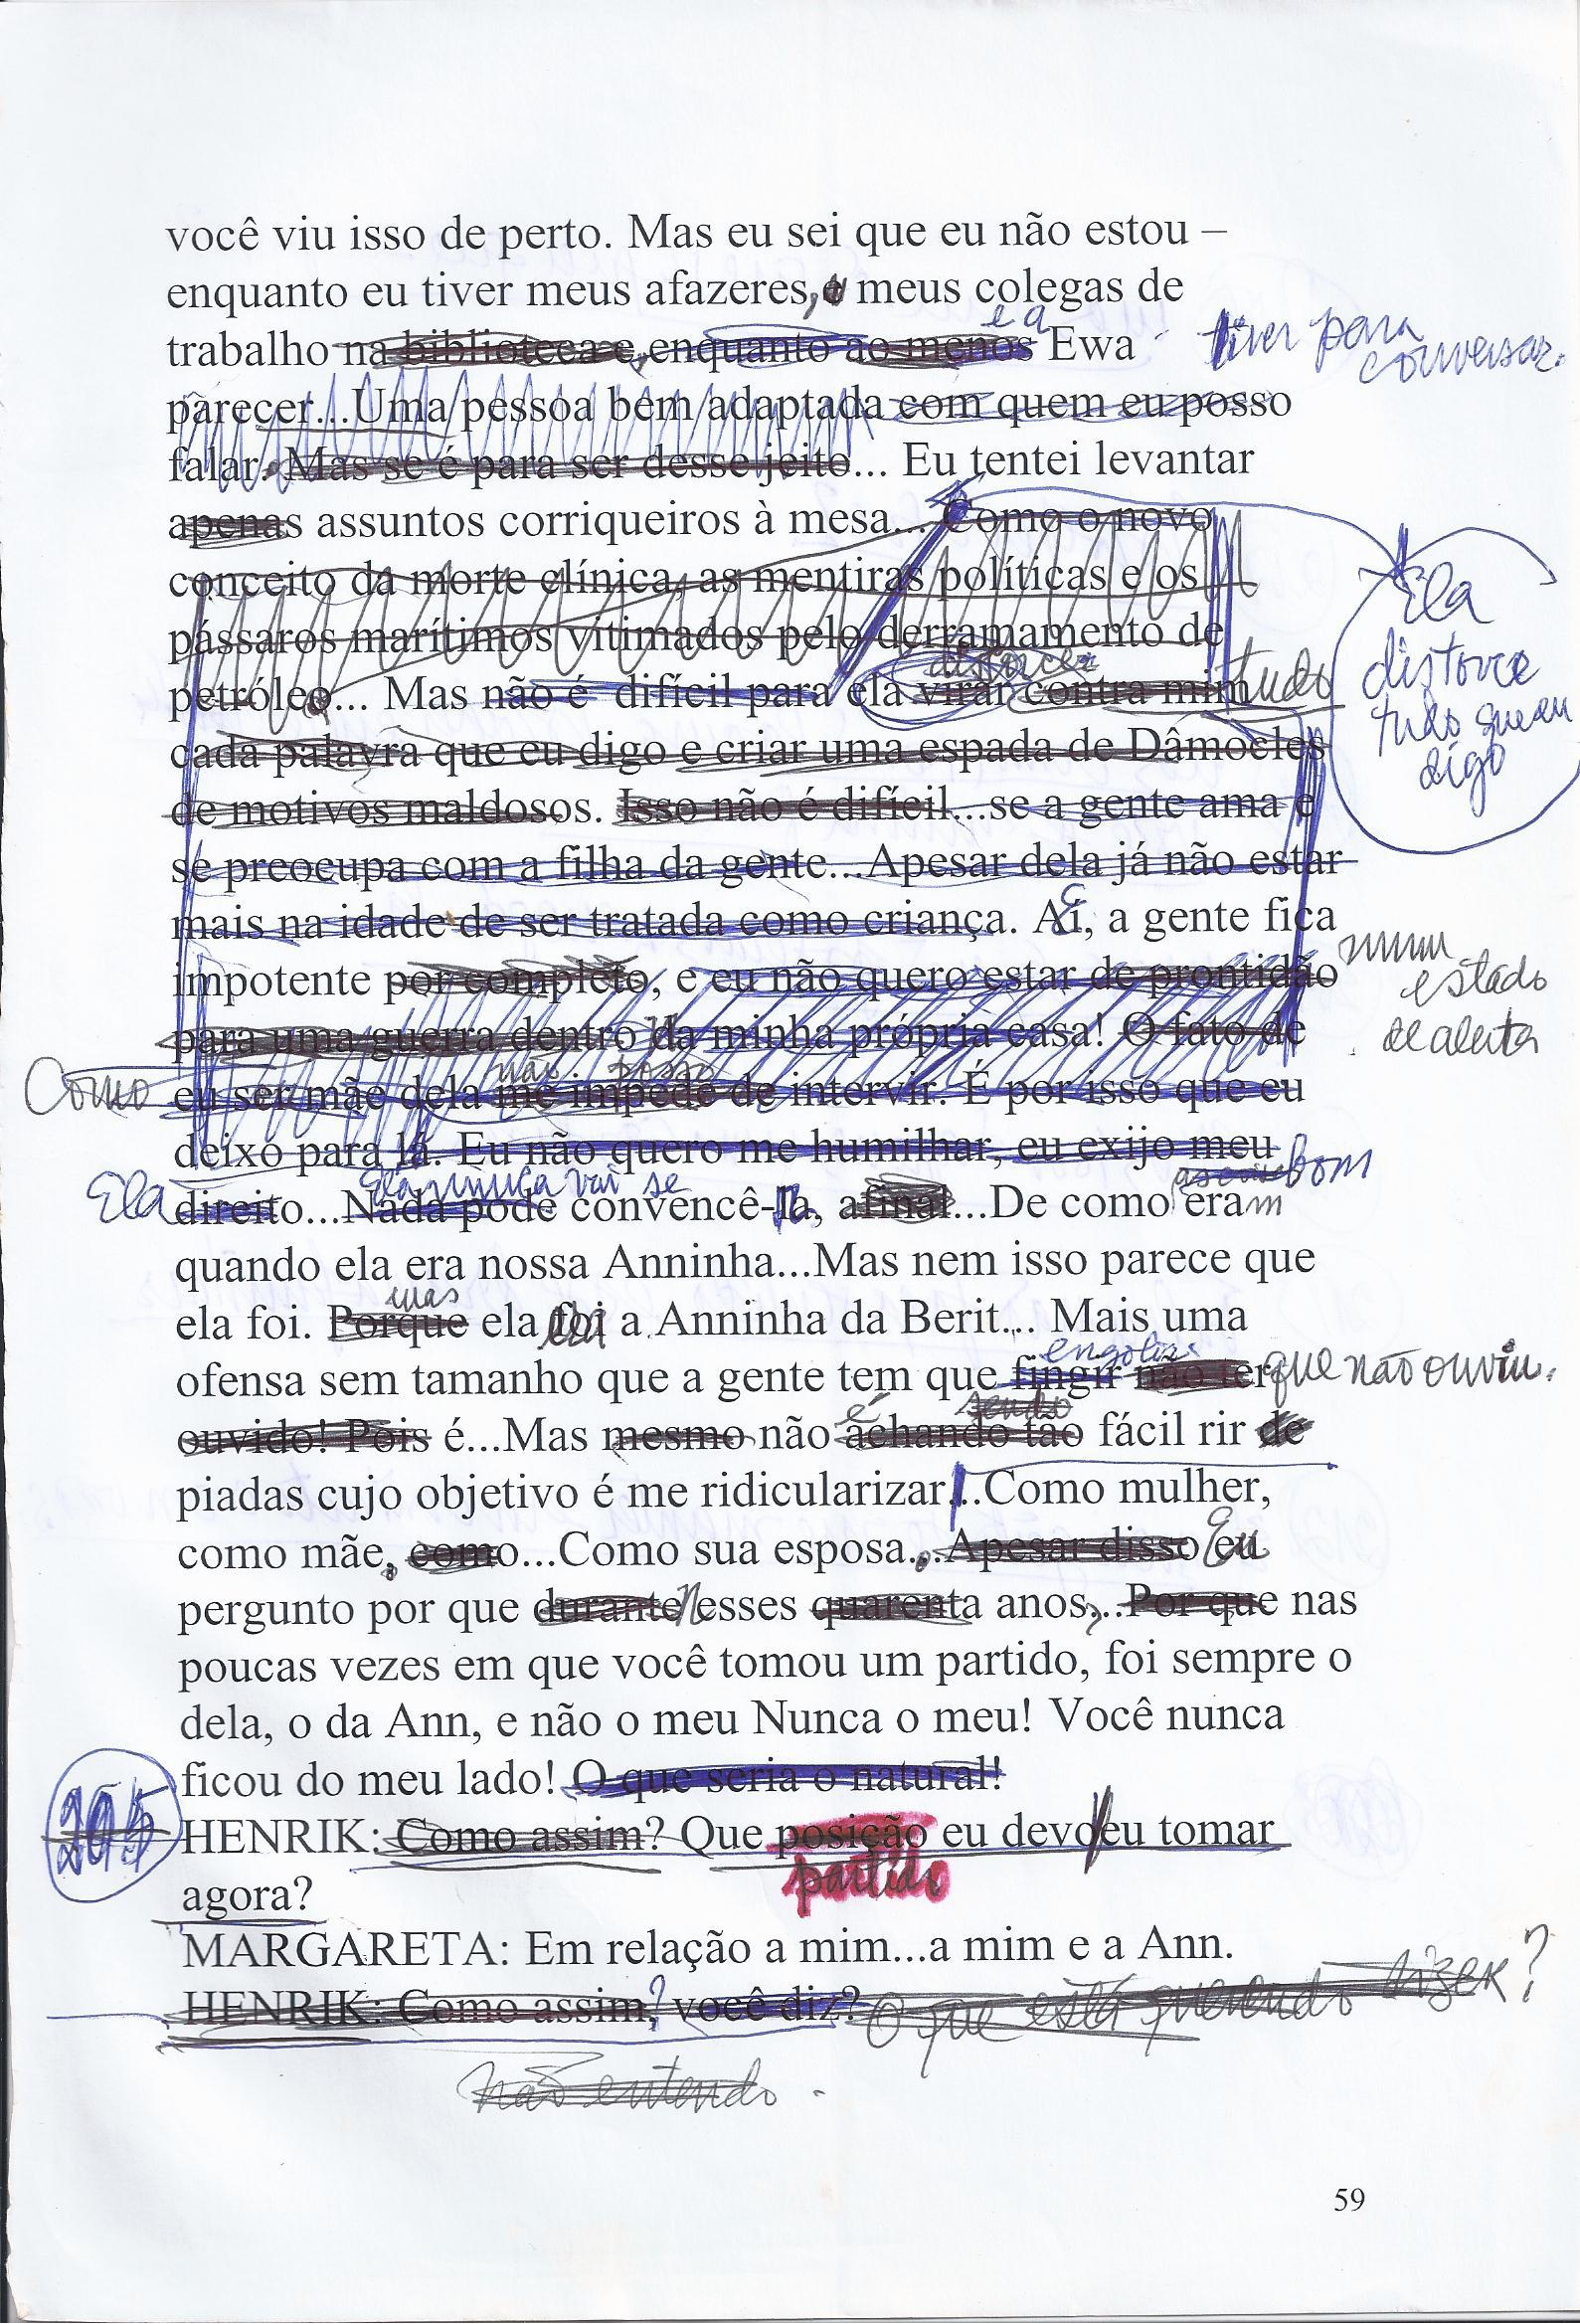 você viu isso de perto. Mas eu sei que eu não estou –
enquanto eu tiver meus afazeres, e meus colegas de
e a
trabalho na biblioteca e, enquanto ao menos Ewa tiver para
conversar.
parecer...Uma pessoa bem adaptada com quem eu posso
falar. Mas se é para ser desse jeito... Eu tentei levantar
apenas assuntos corriqueiros à mesa... Como o novo
conceito da morte clínica, as mentiras políticas e os
pássaros marítimos vitimados pelo derramamento de
distorcer
petróleo... Mas não é difícil para ela virar contra mim tudo
Ela
distorce
tudo que eu
digo
cada palavra que eu digo e criar uma espada de Dâmocles
de motivos maldosos. Isso não é difícil...se a gente ama e
se preocupa com a filha da gente...Apesar dela já não estar
mais na idade de ser tratada como criança. Aí, a gente fica
impotente por completo, e eu não quero estar de prontidão
num
estado
de alerta
para uma guerra dentro da minha própria casa! O fato de
não posso
Como eu ser mãe dela me impede de intervir. É por isso que eu
deixo para lá. Eu não quero me humilhar, eu exijo meu
Ela nunca vai se bom
Ela direito...Nada pode convencê-la, afinal...De como eram
quando ela era nossa Anninha...Mas nem isso parece que
mas
ela foi. Porque ela foi a Anninha da Berit... Mais uma
engolir
ofensa sem tamanho que a gente tem que fingir não ter que não ouviu.
é sendo
ouvido! Pois é...Mas mesmo não achando tão fácil rir de
piadas cujo objetivo é me ridicularizar...Como mulher,
como mãe, como...Como sua esposa...Apesar disso eu
pergunto por que durante esses quarenta anos,...Por que nas
poucas vezes em que você tomou um partido, foi sempre o
dela, o da Ann, e não o meu Nunca o meu! Você nunca
ficou do meu lado! O que seria o natural!
205 HENRIK: Como assim? Que posição eu devo eu tomar
partido
agora?
MARGARETA: Em relação a mim...a mim e a Ann.
HENRIK: Como assim,? você diz? O que está querendo dizer?
não entendo.
59